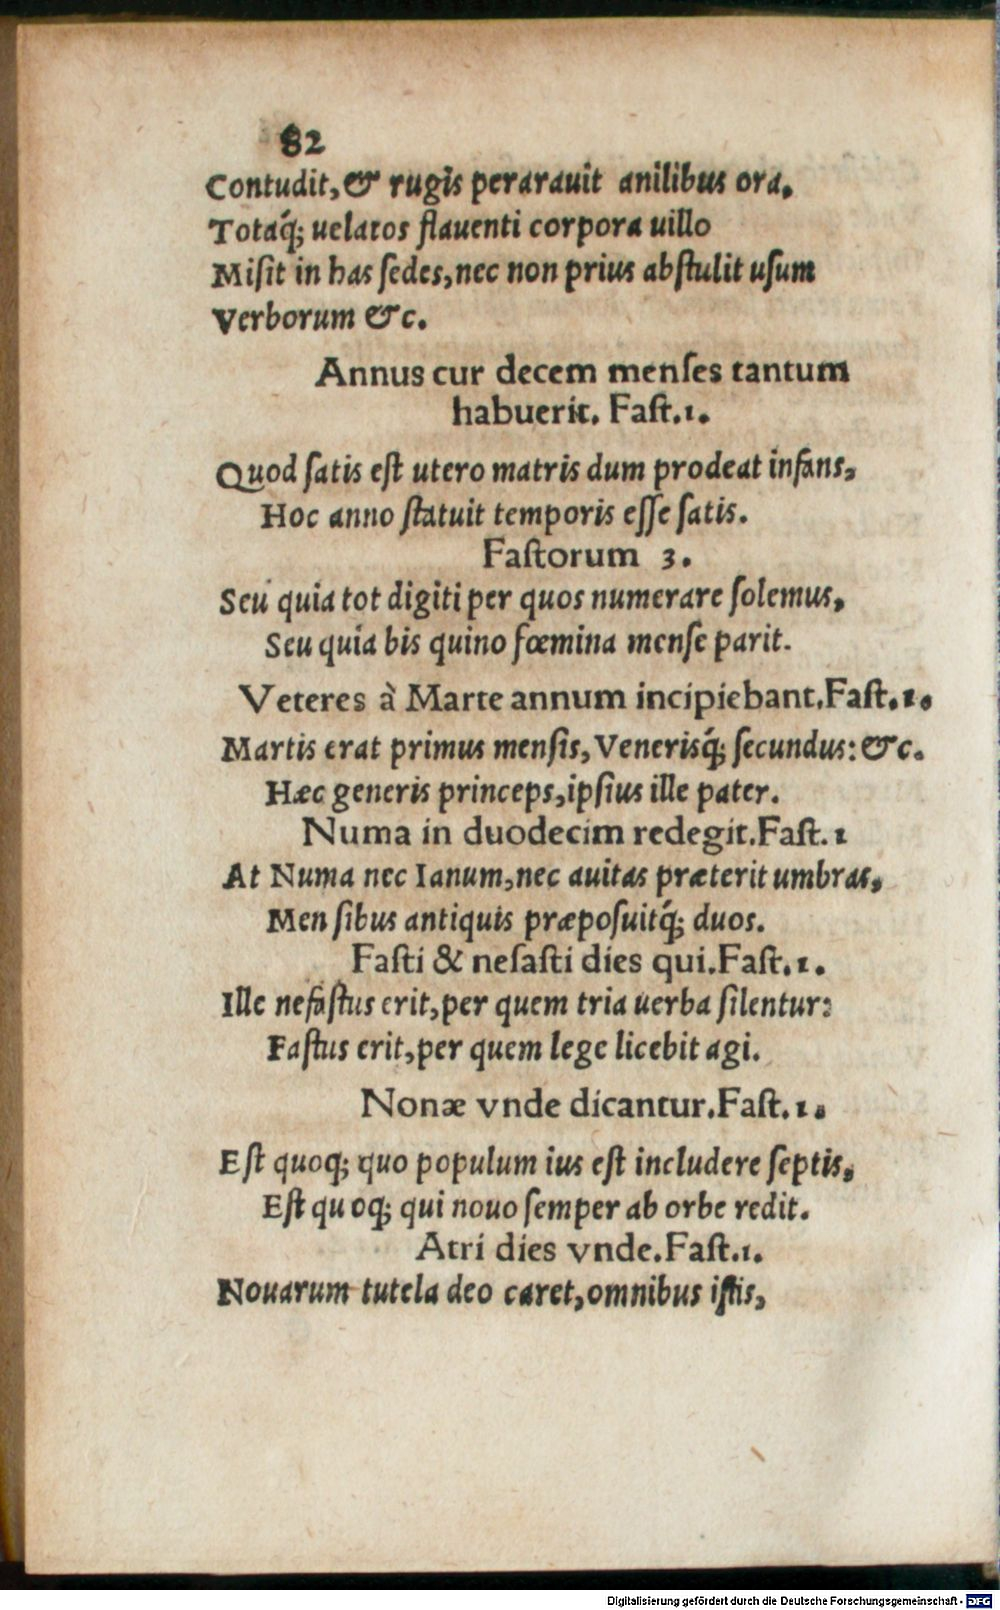 82
Contudit, & rugis perarauit anilibus ora.
Totaq́; uelatos flauenti corpora uillo
Misit in has sedes, nec non prius abstulit usum
Verborum &c.
Annus cur decem menses tantum
habuerit. Fast. 1.
Quod satis est utero matris dum prodeat infans,
Hoc anno statuit temporis esse satis.
Fastorum 3.
Seu quia tot digiti per quos numerare solemus,
Seu quia bis quino fœmina mense parit.
Veteres à Marte annum incipiebant. Fast. 1.
Martis erat primus mensis, Venerisq́; secundus: &c.
Hæc generis princeps, ipsius ille pater.
Numa in duodecim redegit. Fast. 1
At Numa nec Ianum, nec auitas præterit umbras,
Men sibus antiquis præposuitq́; duos.
Fasti & nefasti dies qui. Fast. 1.
Ille nefastus erit, per quem tria uerba silentur:
Fastus erit, per quem lege licebit agi.
Nonæ vnde dicantur. Fast. 1.
Est quoq; quo populum ius est includere septis,
Est qu oq; qui nouo semper ab orbe redit.
Atri dies vnde. Fast. 1.
Nouarum tutela deo caret, omnibus istis,
Digitalisierung gefördert durch die Deutsche Forschungsgemeinschaft - DFG